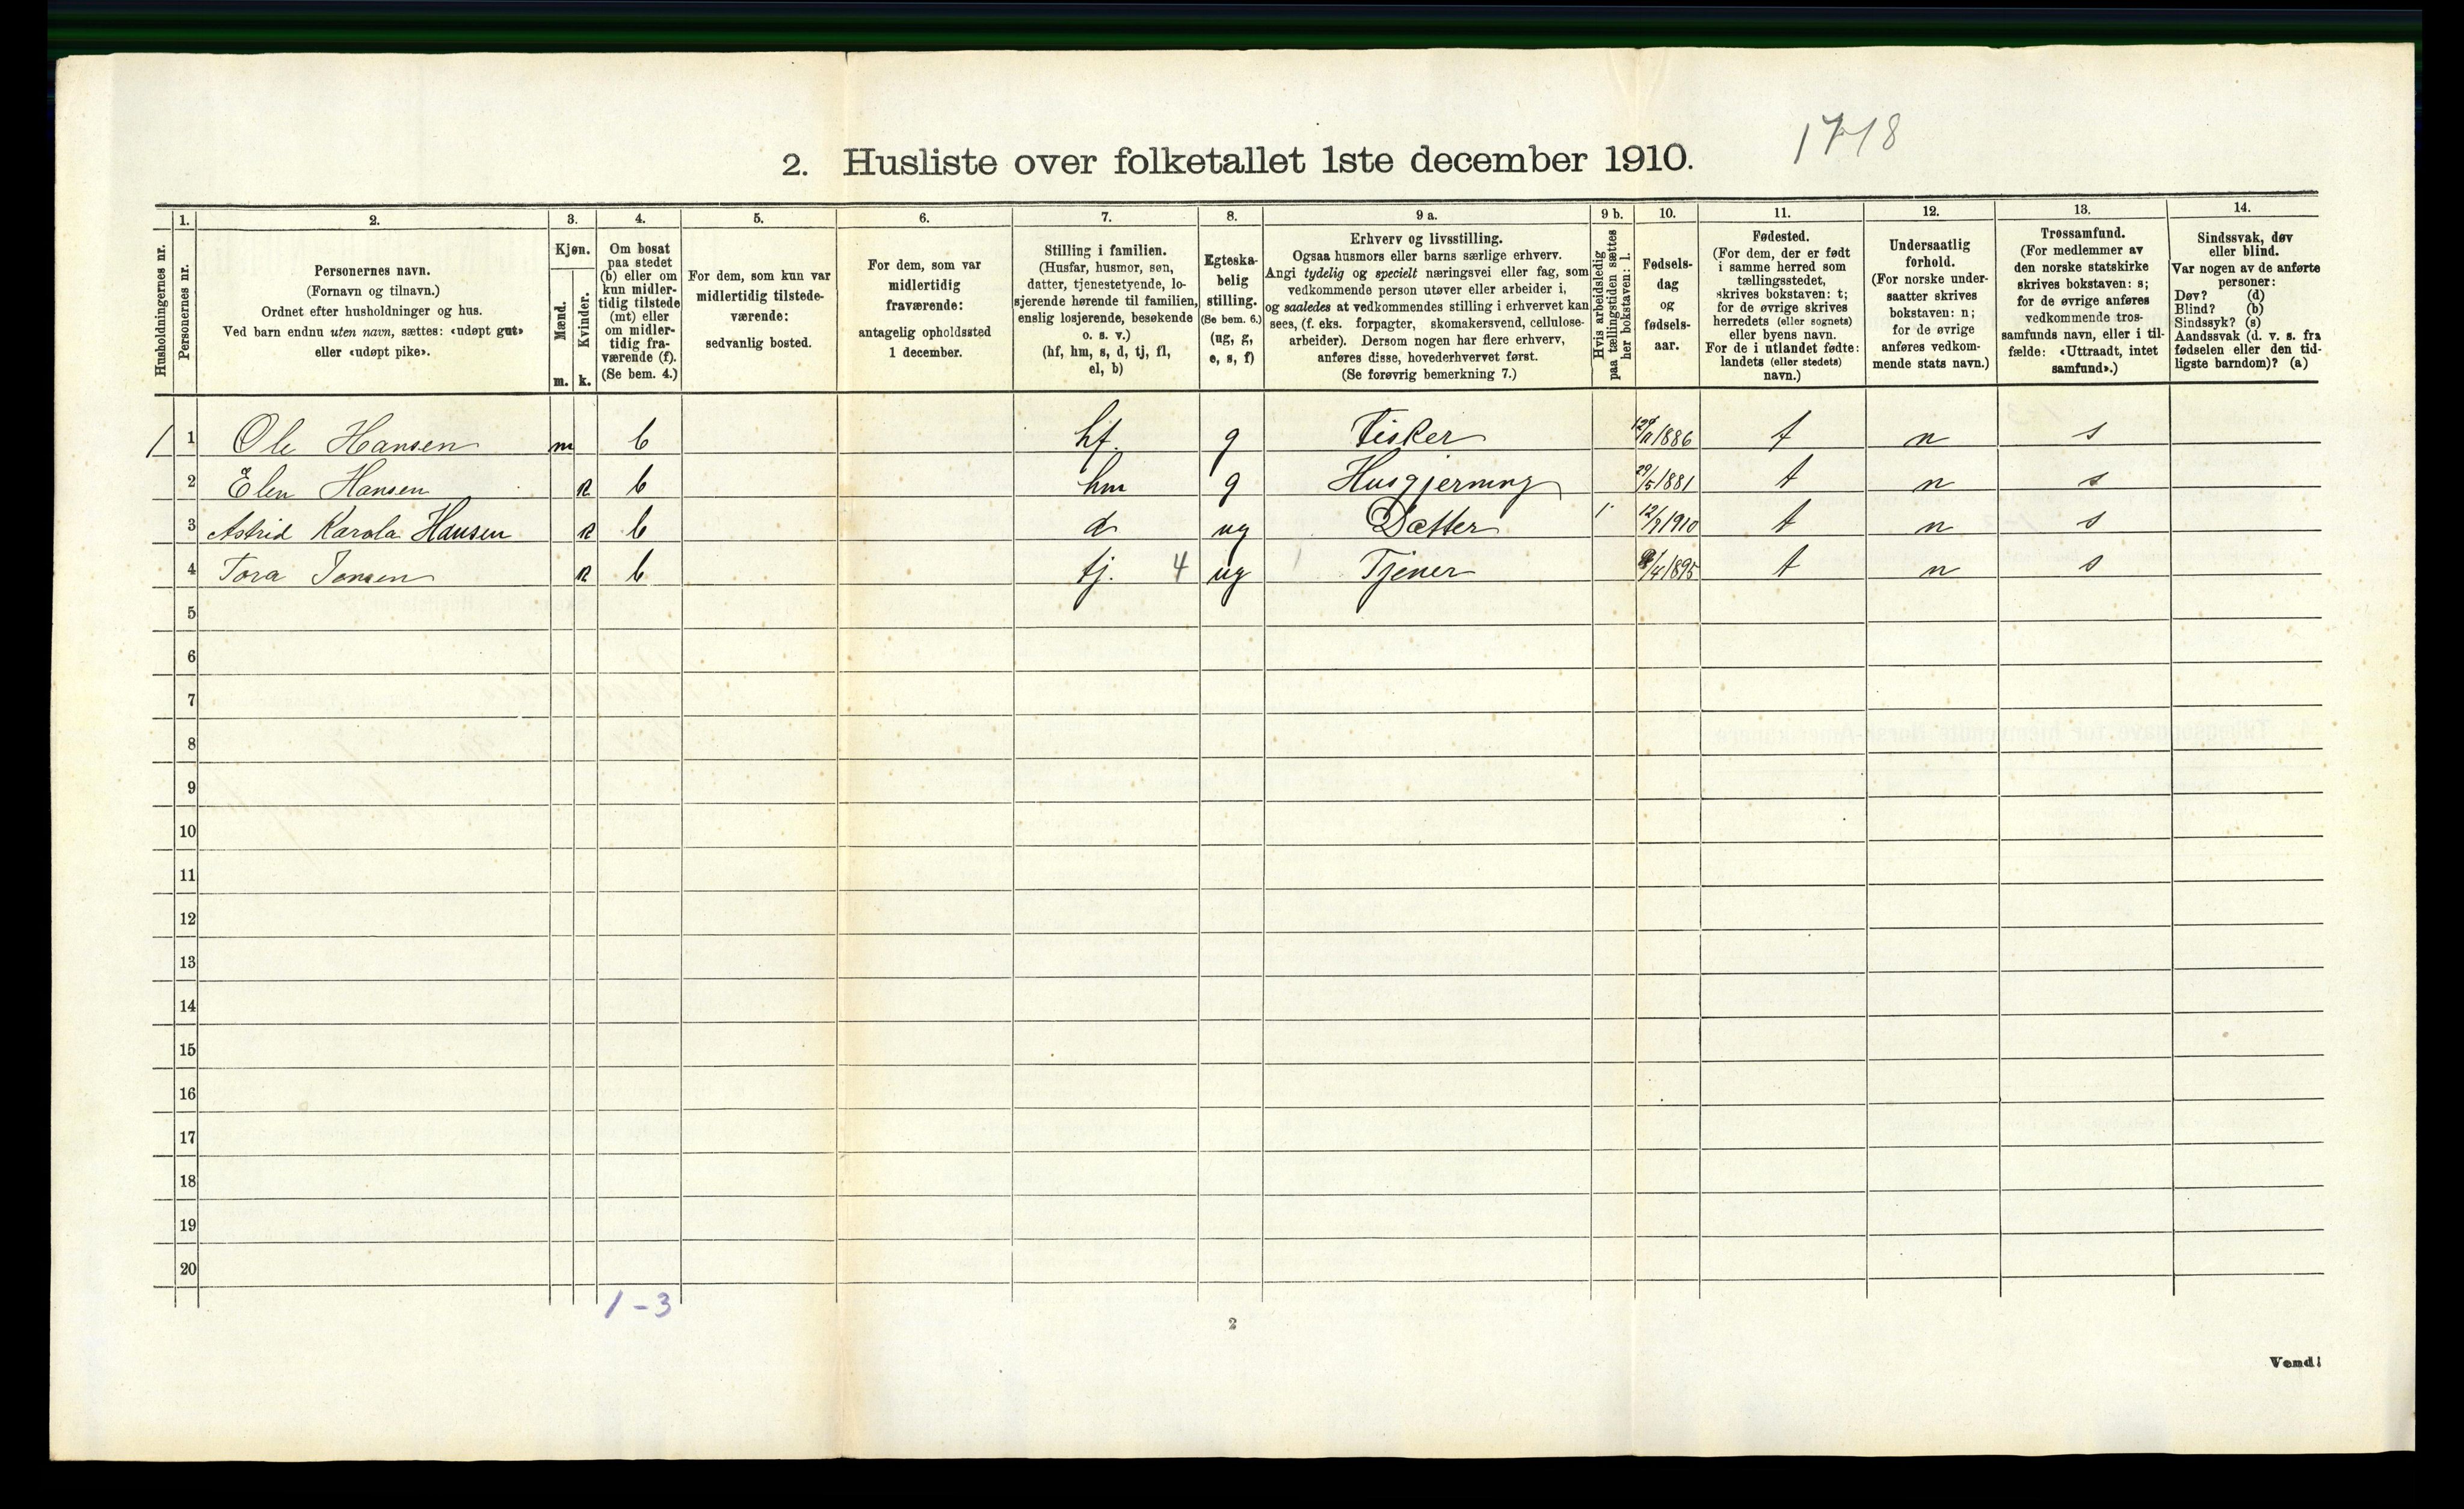 1718
2. Husliste over folketallet 1ste december 1910.
Husholdningernes nr.
1.
Personernes nr.
2.
Personernes navn.
(Fornavn og tilnavn.)
Ordnet efter husholdninger og hus.
Ved barn endnu uten navn, sættes: «udøpt gut»
eller «udøpt pike».
3.
Kjøn.
Mænd.
Kvinder.
m. k.
4.
Om bosat
paa stedet
(b) eller om
kun midler-
tidig tilstede
(mt) eller
om midler-
tidig fra-
værende (f).
(Se bem. 4.)
5.
For dem, som kun var
midlertidig tilstede-
værende:
sedvanlig bosted.
6.
For dem, som var
midlertidig
fraværende:
antagelig opholdssted
1 december.
7.
Stilling i familien.
(Husfar, husmor, søn,
datter, tjenestetyende, lo-
sjerende hørende til familien,
enslig losjerende, besøkende
o. s. v.)
(hf, hm, s, d, tj, fl,
el, b)
8.
Egteska-
belig
stilling.
(Se bem. 6.)
(ug, g,
e, s, f)
9 a.
Erhverv og livsstilling.
Ogsaa husmors eller barns særlige erhverv.
Angi tydelig og specielt næringsvei eller fag, som
vedkommende person utøver eller arbeider i,
og saaledes at vedkommendes stilling i erhvervet kan
sees, (f. eks. forpagter, skomakersvend, cellulose-
arbeider). Dersom nogen har flere erhverv,
anføres disse, hovederhvervet først.
(Se forøvrig bemerkning 7.)
9 b.
Hvis arbeidsledig
paa tællingstiden sættes
her bokstaven: l.
10.
Fødsels-
dag
og
fødsels-
aar.
11.
Fødested.
(For dem, der er født
i samme herred som
tællingsstedet,
skrives bokstaven: t;
for de øvrige skrives
herredets (eller sognets)
eller byens navn.
For de i utlandet fødte:
landets (eller stedets)
navn.)
12.
Undersaatlig
forhold.
(For norske under-
saatter skrives
bokstaven: n;
for de øvrige
anføres vedkom-
mende stats navn.)
13.
Trossamfund.
(For medlemmer av
den norske statskirke
skrives bokstaven: s;
for de øvrige anføres
vedkommende tros-
samfunds navn, eller i til-
fælde: «Uttraadt, intet
samfund».)
14.
Sindssvak, døv
eller blind.
Var nogen av de anførte
personer:
Døv? (d)
Blind? (b)
Sindssyk? (s)
Aandssvak (d. v. s. fra
fødselen eller den tid-
ligste barndom)? (a)
1 1 Ole Hansen m b hf. g Fisker 1886 t n s
2 Elen Hansen k b hm g Husgjerning 29/5 1881 t n s
3 Astrid Karola Hansen k b d ug Datter 12/7 1910 t n s
4 Tora Jensen k b tj. 4 ug Tjener /4 1895 t n s
5
6
7
8
9
10
11
12
13
14
15
16
17
18
19
20
1 - 3
2
Vend!